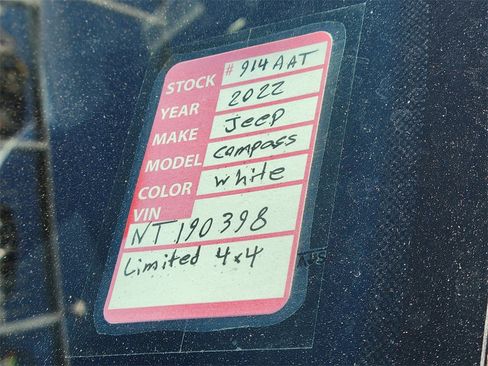 STOCK # 914AAT
YEAR 2022
MAKE Jeep
MODEL Compass
COLOR white
VIN
NT190398
Limited 4x4